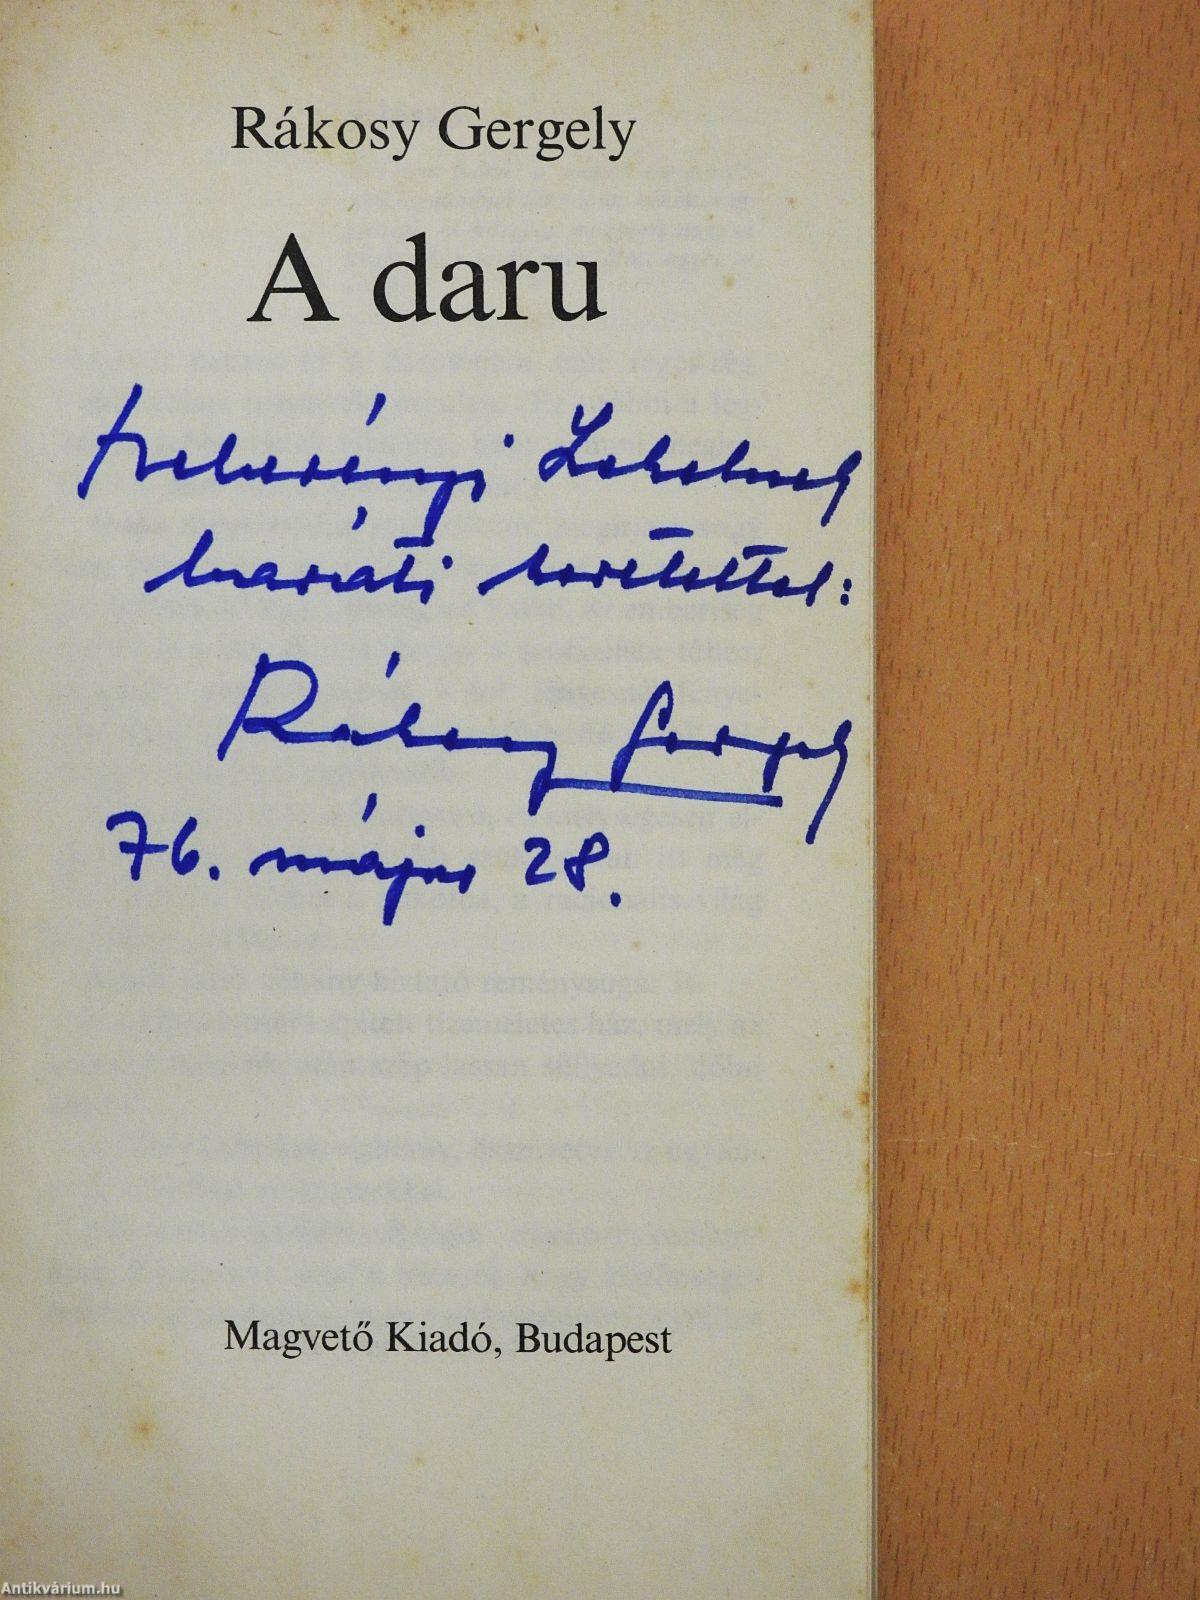 Rákosy Gergely
A daru
Szelevényi Lehelnek
baráti szeretettel:
Rákosy Gergely
76. május 28.
Magvető Kiadó, Budapest
Antikvárium.hu